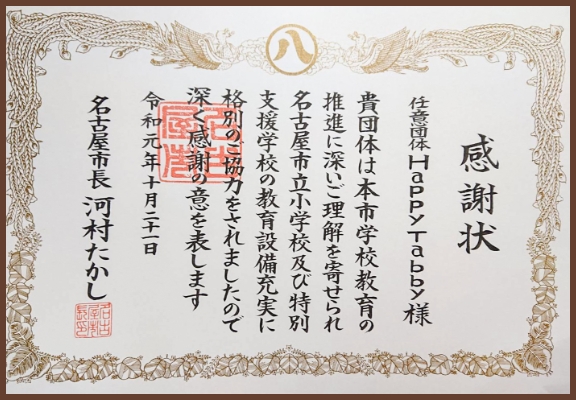 八
感謝状
任意団体HappyTabby様
貴団体は本市学校教育の
推進に深いご理解を寄せられ
名古屋市立小学校及び特別
支援学校の教育設備充実に
格別のご協力をされましたので
深く感謝の意を表します
令和元年十月二十一日
名古屋市長 河村たかし